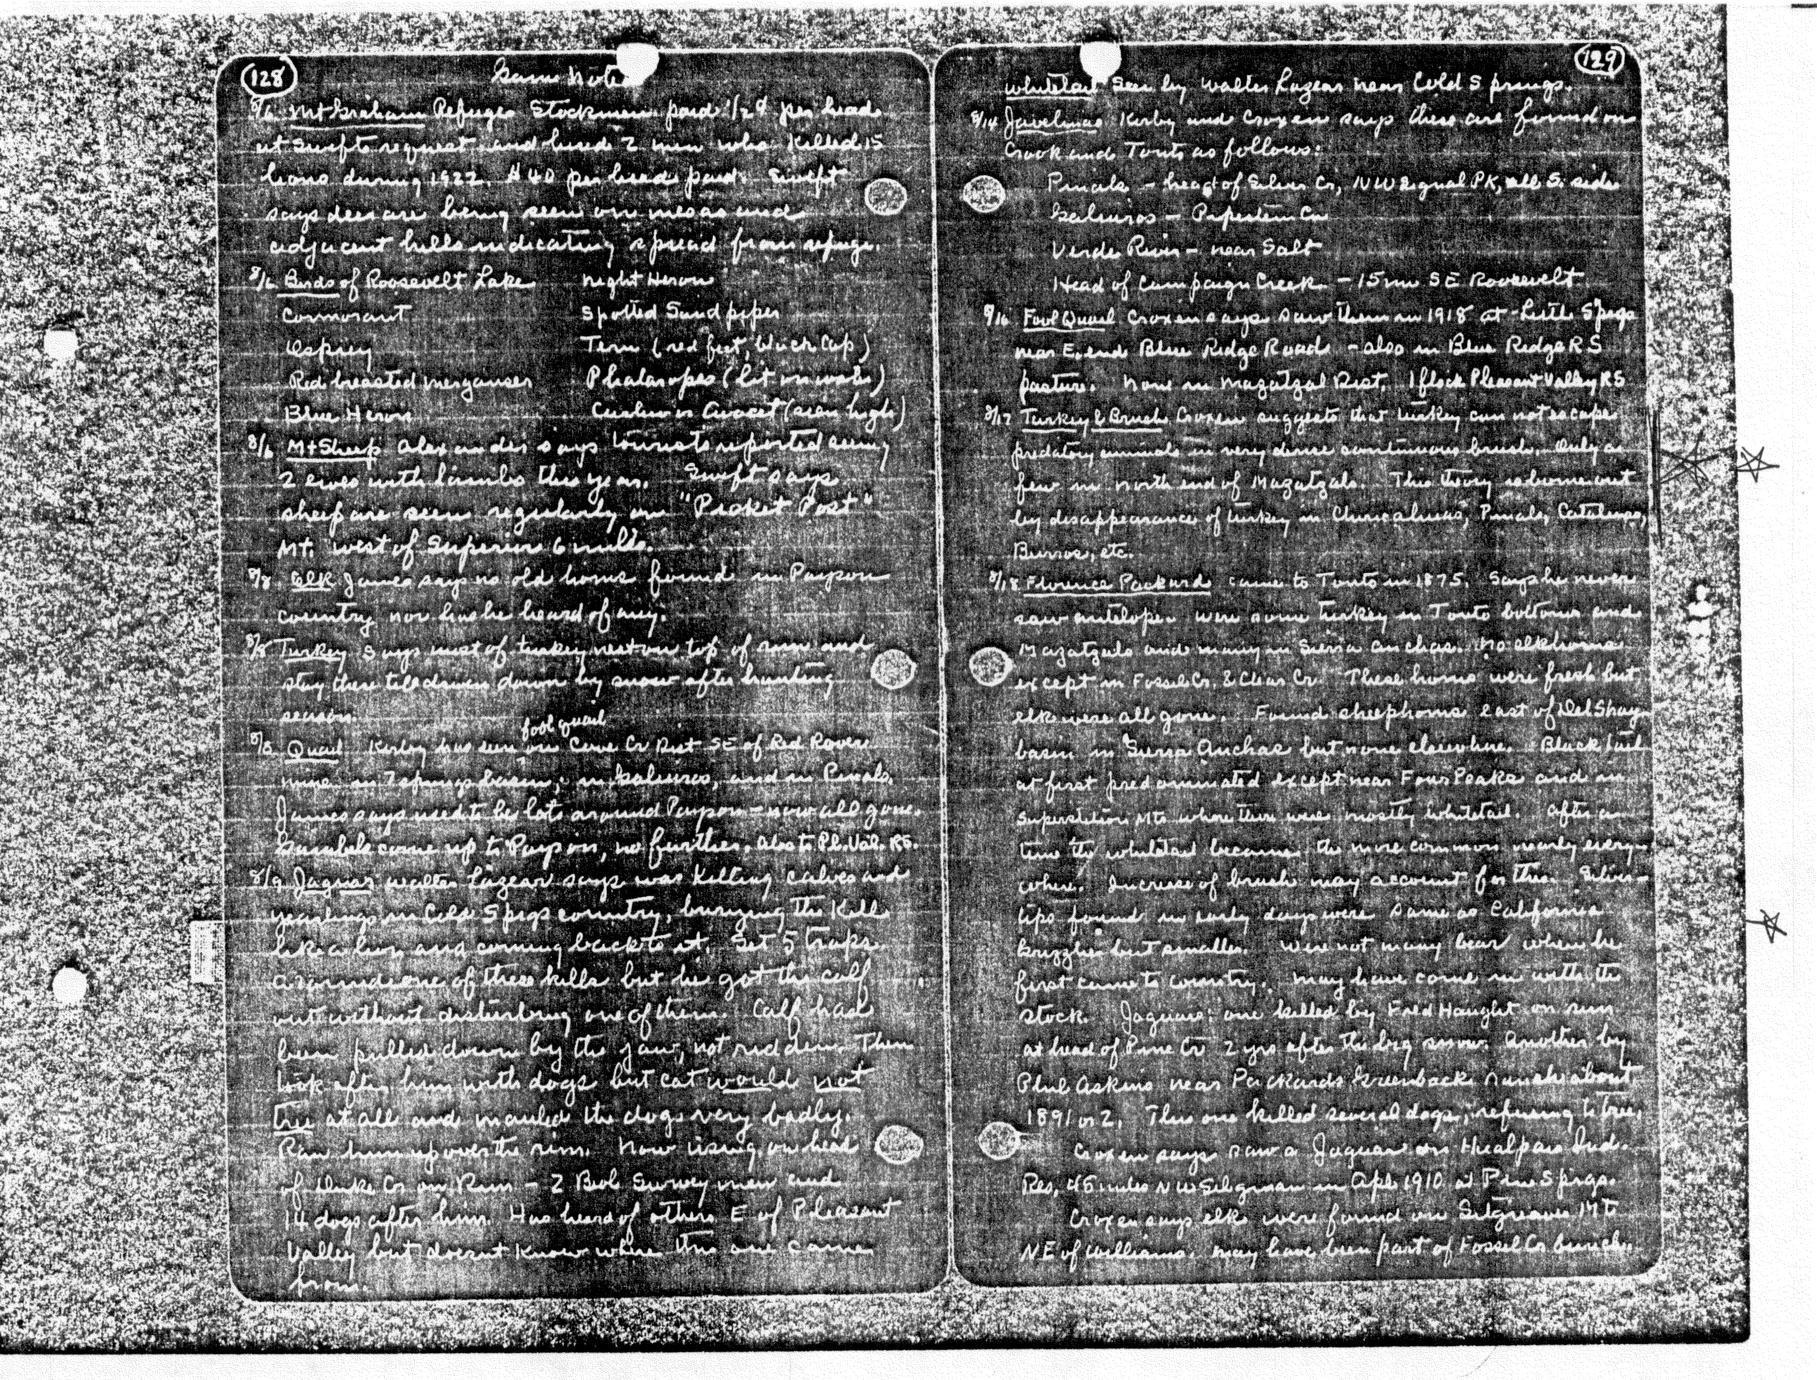 128
Game Notes
8/6 Mt Graham Refuge Stockmen paid 1/2 ¢ per head
at Swifts request and hired 2 men who killed 15
lions during 1922. $40 per head paid. Swift
says deer are being seen on mesas and
adjacent hills indicating spread from refuge.
8/6 Birds of Roosevelt Lake
Cormorant
Osprey
Red breasted merganser
Blue Heron
night Heron
Spotted Sandpiper
Tern (red feet, black cap)
Phalaropes (lit on water)
Curlew or Avocet (seen high)
8/6 Mt Sheep Alexander says tourists reported seeing
2 ewes with lambs this year. Swift says
sheep are seen regularly on "Picket Post"
Mt. west of Superior 6 miles.
8/8 Elk James says no old horns found in Payson
country nor has he heard of any.
8/8 Turkey Says most of turkey nest on top of rim and
stay there till driven down by snow after hunting
season.
8/8 Quail Kirby has seen fool quail on Cave Cr Dist SE of Red Rover
mine in 7 springs basin, in Galiuros, and in Pinals.
James says used to be lots around Payson - now all gone.
Gambels come up to Payson, no further. Also to Pl. Val. RS.
8/9 Jaguar Walter Lazear says was killing calves and
yearlings in Cold Spigs country, burying the kill
like a lion and coming back to it. Set 5 traps
around one of these kills but he got the calf
out without disturbing one of them. Calf had
been pulled down by the jaw, not ridden. Then
took after him with dogs but cat would not
tree at all and mauled the dogs very badly.
Ran him up over the rim. Now using on head
of Duke Cr on Rim - 2 Biol Survey men and
14 dogs after him. Has heard of others E of Pleasant
Valley but doesnt know where this one came
from.
129
whitetail Seen by Walter Lazear near Cold Springs.
8/14 Javelinas Kirby and Croxen says these are found on
Crook and Tonto as follows:
Pinals - head of Silver Cr, NW Signal PK, all S. side
Galiuros - Pipestem Cn
Verde River - near Salt
Head of Campaign Creek - 15 mi SE Roosevelt
8/16 Fool Quail Croxen says saw them in 1918 at Little Spigs
near E. end Blue Ridge Road - also in Blue Ridge RS
pasture. None in Mazatzal Dist. 1 flock Pleasant Valley RS
8/17 Turkey & Brush Croxen suggests that turkey can not escape
predatory animals in very dense continuous brush. Only a
few in north end of Mazatzals. This theory is borne out
by disappearance of turkey in Chiricahuas, Pinals, Catalinas,
Burros, etc.
8/18 Florence Packard came to Tonto in 1875. Says he never
saw antelope. Were some turkey in Tonto bottoms and
Mazatzals and many in Sierra Anchas. No elkhorns
except in Fossil Cr. & Clear Cr. These horns were fresh but
elk were all gone. Found sheephorns east of Del Shay
basin in Sierra Anchas but none elsewhere. Blacktail
at first predominated except near Four Peaks and in
Superstition Mts where there were mostly whitetail. After a
time the whitetail became the more common nearly every-
where. Increase of brush may account for this. Silver-
tips found in early days were same as California
Grizzlies but smaller. Were not many bear when he
first came to country. May have come in with the
stock. Jaguars: one killed by Fred Haught on rim
at head of Pine Cr 2 yrs after the big snow. Another by
Phil Askins near Packards Greenback ranch about
1891 or 2. This one killed several dogs, refusing to tree.
Croxen says saw a Jaguar on Hualpais Ind.
Res, 45 miles NW Seligman in Apl 1910 at Pine Spigs.
Croxen says elk were found on Sitgreaves Mt
NE of Williams. May have been part of Fossil Cr bunch.